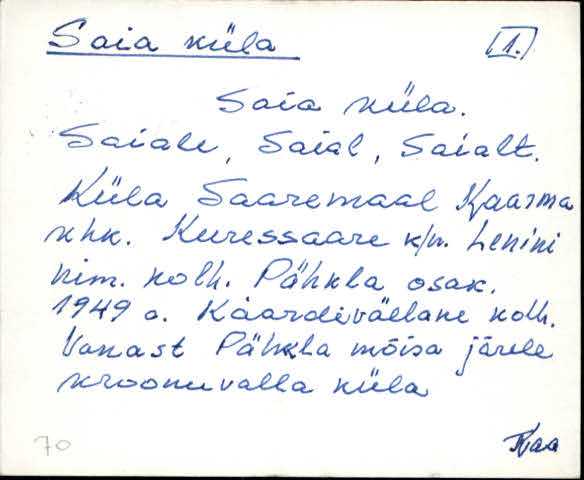 Saia küla [1.]
Saia küla.
Saiale, Saial, Saialt.
Küla Saaremaal Kaarma
khk. Kuressaare k/n. Lenini
nim. kolh. Pähkla osak.
1949 a. Kaardiväelane kolh.
Vanast Pähkla mõisa järele
kroonuvalla küla
70 Kaa